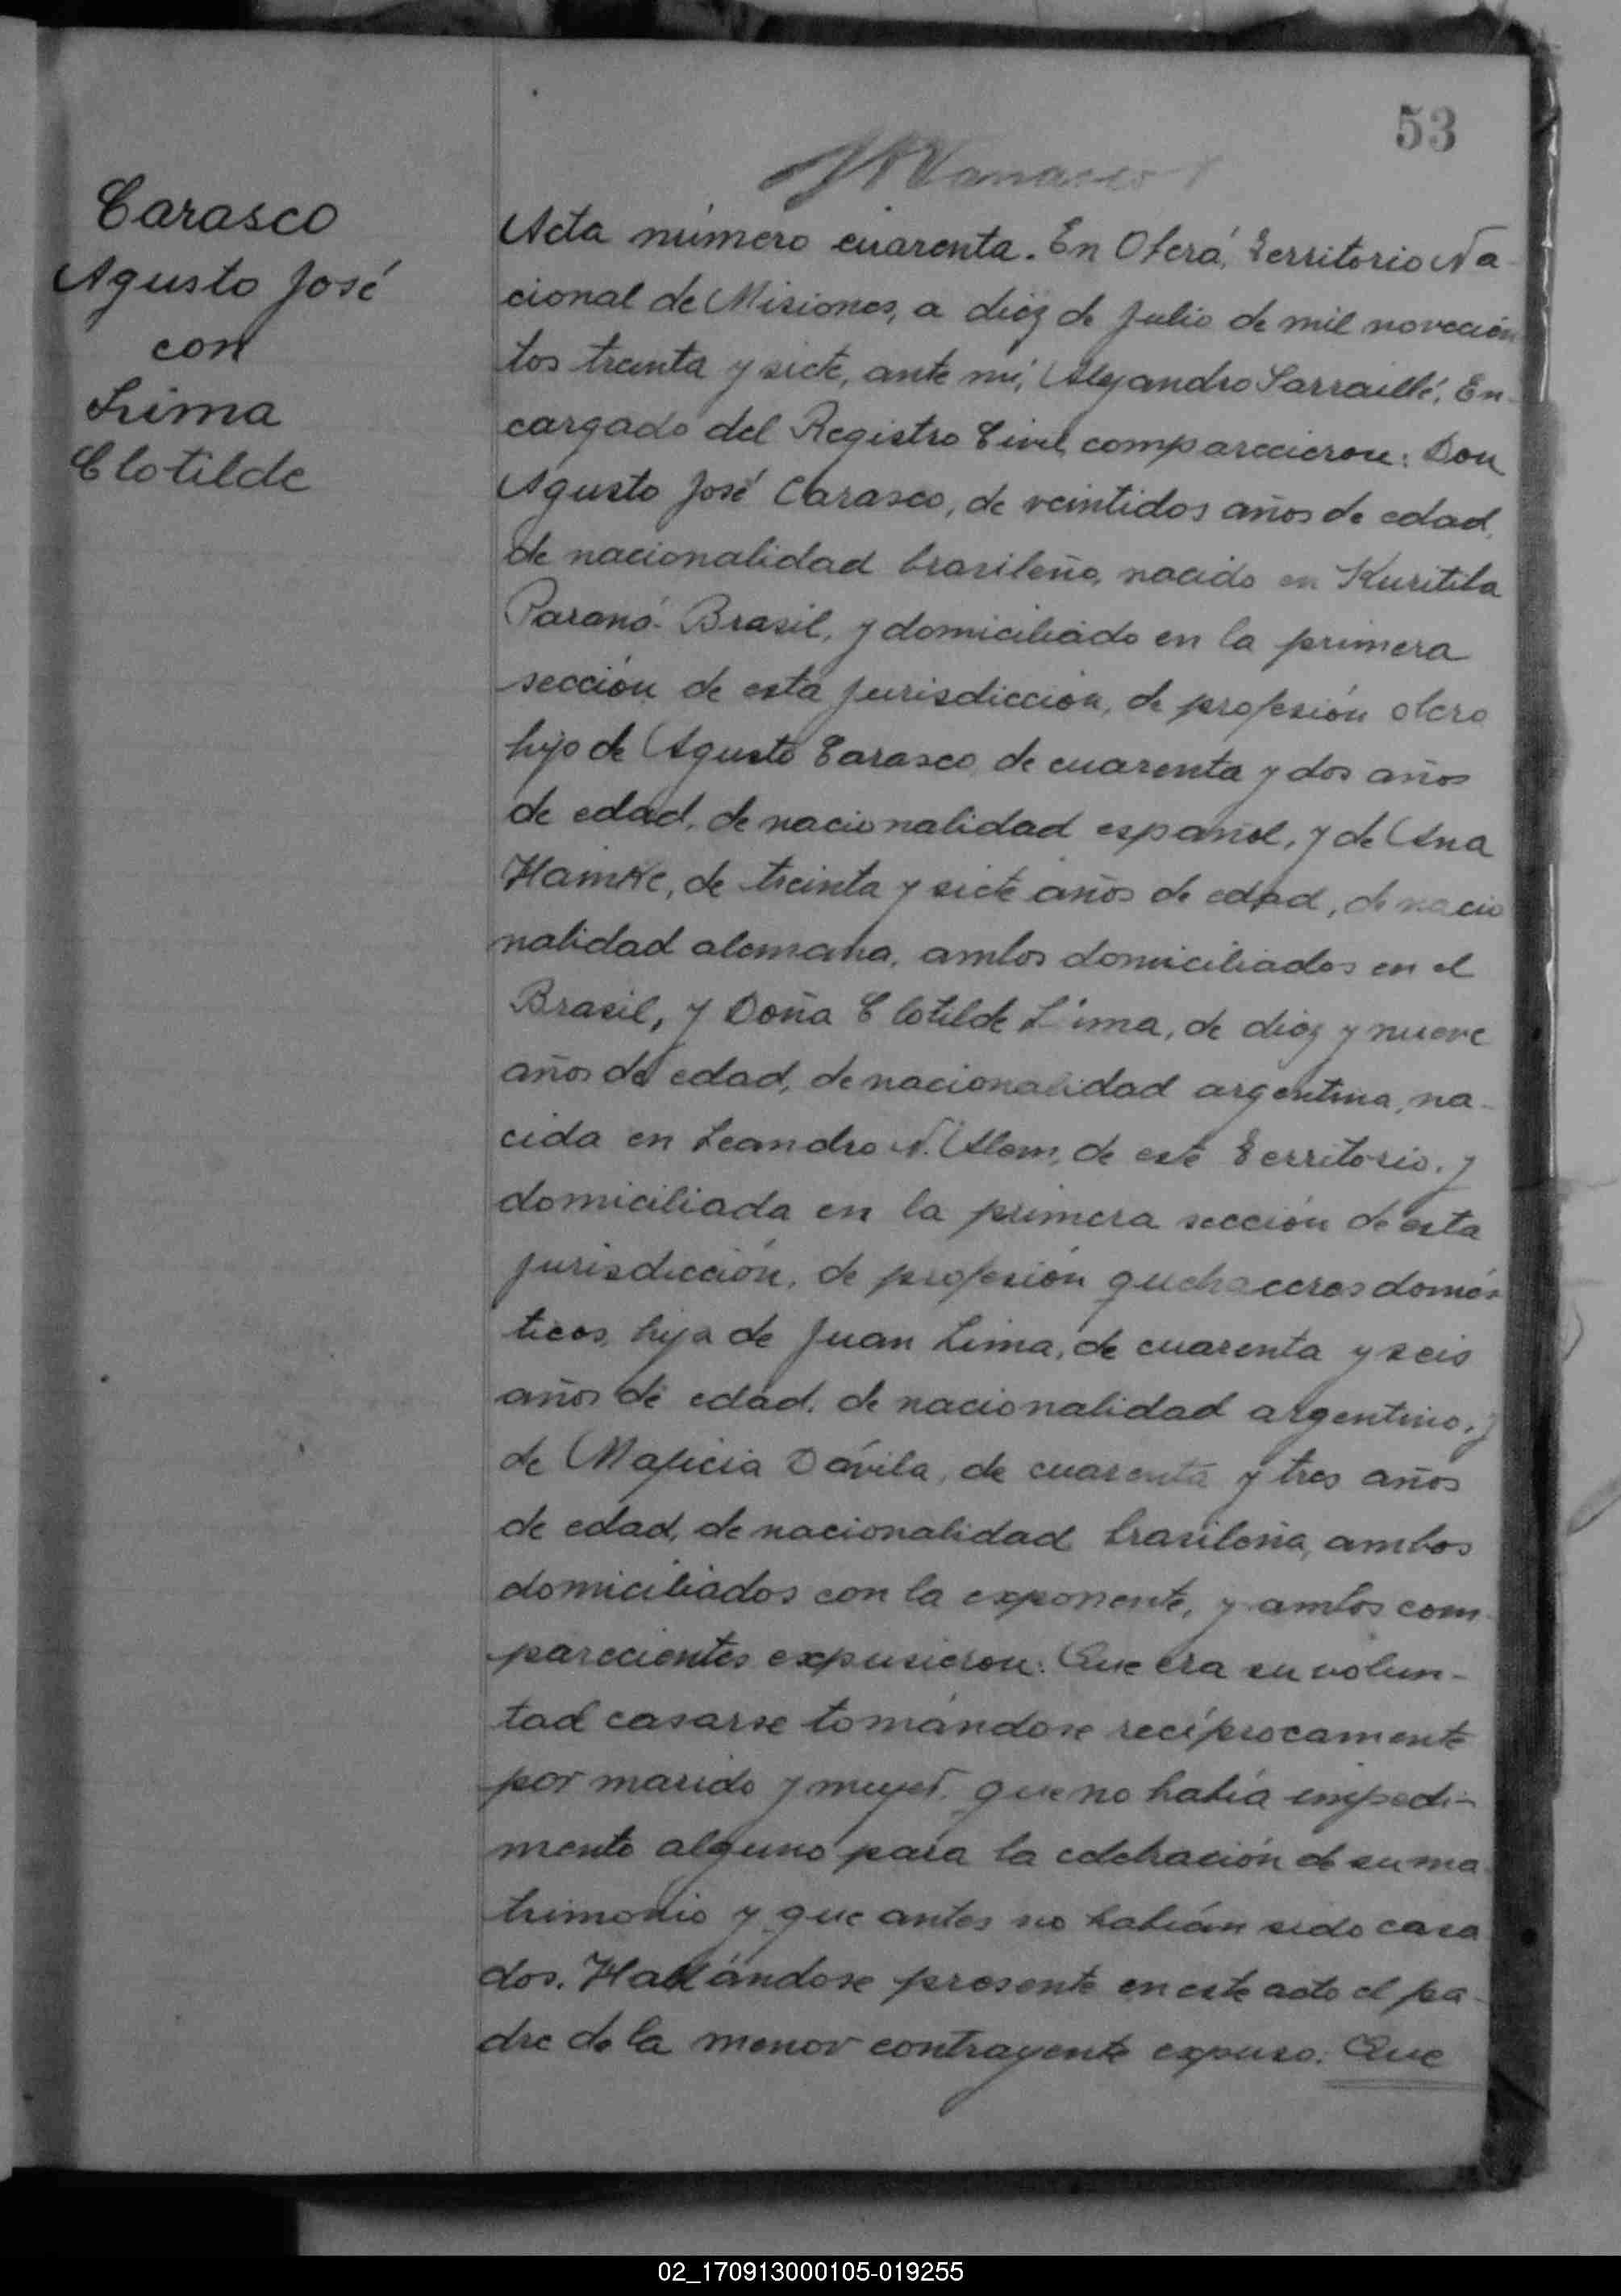 53
Carasco
Agusto José
con
Lima
Clotilde
Acta número cuarenta. En Oberá, Territorio Na-
cional de Misiones, a diez de Julio de mil novecien
tos treinta y siete, ante mi, Alejandro Sarraillé, En-
cargado del Registro Civil, comparecieron: Don
Agusto José Carasco, de veintidos años de edad,
de nacionalidad brasileño, nacido en Kuritiba
Paraná- Brasil, y domiciliado en la primera
sección de esta jurisdicción, de profesión obrero
hijo de Agusto Carasco, de cuarenta y dos años
de edad, de nacionalidad español, y de Ana
Hamke, de treinta y siete años de edad, de nacio
nalidad alemana, ambos domiciliados en el
Brasil, y Doña Clotilde Lima, de diez y nueve
años de edad, de nacionalidad argentina, na-
cida en Leandro N. Alem, de este Territorio, y
domiciliada en la primera sección de esta
jurisdicción, de profesión quehaceres domés
ticos, hija de Juan Lima, de cuarenta y seis
años de edad, de nacionalidad argentino, y
de Maficia Dávila, de cuarenta y tres años
de edad, de nacionalidad brasileña, ambos
domiciliados con la exponente, y ambos com-
parecientes expusieron: Que era su volun-
tad casarse tomándose recíprocamente
por marido y mujer, que no había impedi-
mento alguno para la celebración de su ma-
trimonio y que antes no habían sido casa
dos. Hallándose presente en este acto el pa-
dre de la menor contrayente expuso: Que
02_170913000105-019255